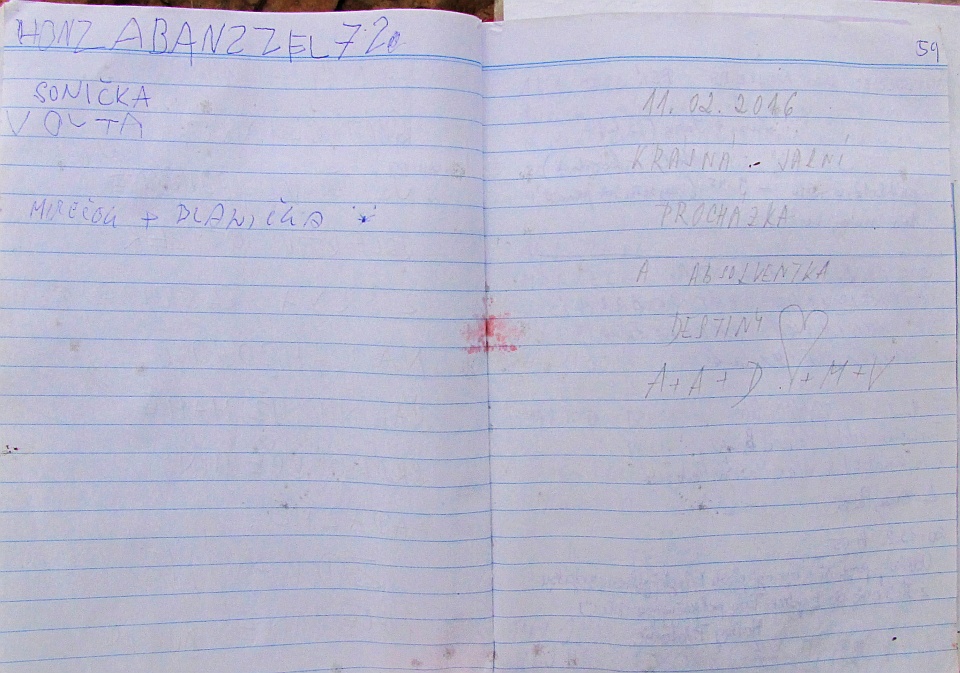 HONZABANZZEL72
SONIČKA
VOLTA
MIREČOU + BLANIČKA
59
11.02.2016
KRAJNÁ JARNÍ
PROCHÁZKA
A ABSOLVENTKA
DESTINY
A+A+D+M+V